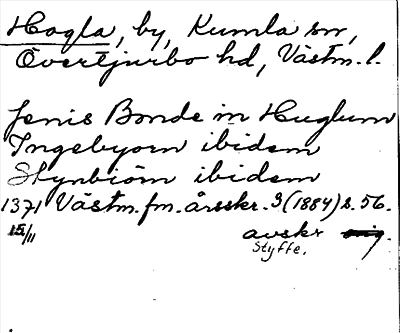 Hagla, by, Kumla sn,
Övertjurbo hd, Västm. l.
Jenis Bonde in Huglum
Ingebyorn ibidem
Stynbiörn ibidem
1371 Västm. fm. årsskr. 3 (1884) s. 56.
15/11 avskr orig.
Styffe.